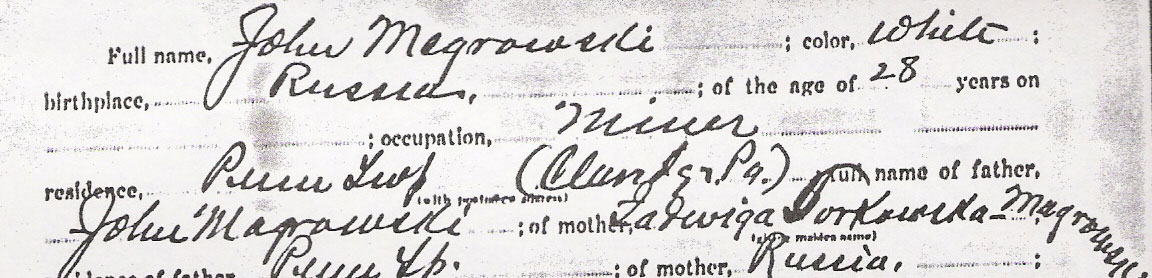 Full name, John Magrowski ; color, White ;
birthplace, Russia, ; of the age of 28 years on
; occupation, Miner
residence, Penn Twp (Clan Jgr. Pa.) full name of father,
John Magrowski ; of mother, Jadwiga Borkowska-Magrowski
(give maiden name)
residence of father, Penn Tp. ; of mother, Russia, ;